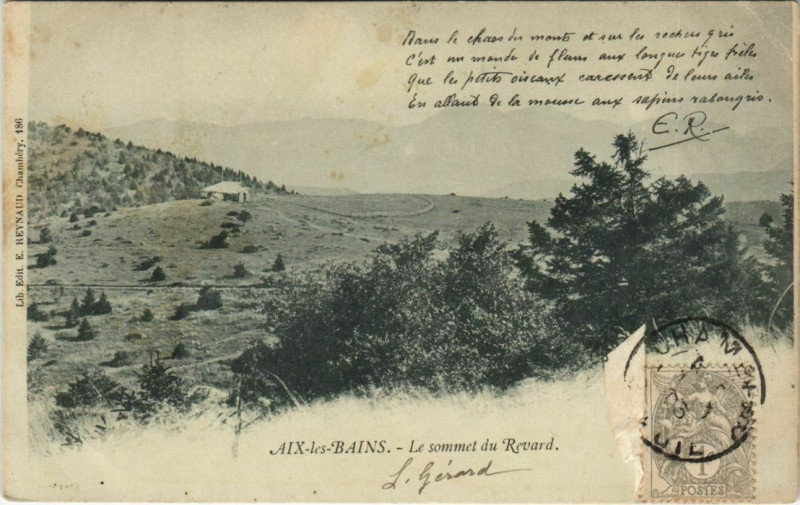 Dans le chaos des monts et sur les rochers gris
C'est un monde de fleurs aux longues tiges frêles
Que les petits oiseaux caressent de leurs ailes
En allant de la mousse aux sapins rabougris.
E.R.
Lib. Edit. E. REYNAUD Chambéry. 186
AIX-les-BAINS. - Le sommet du Revard.
L. Gérard
CHAM
1
POSTES